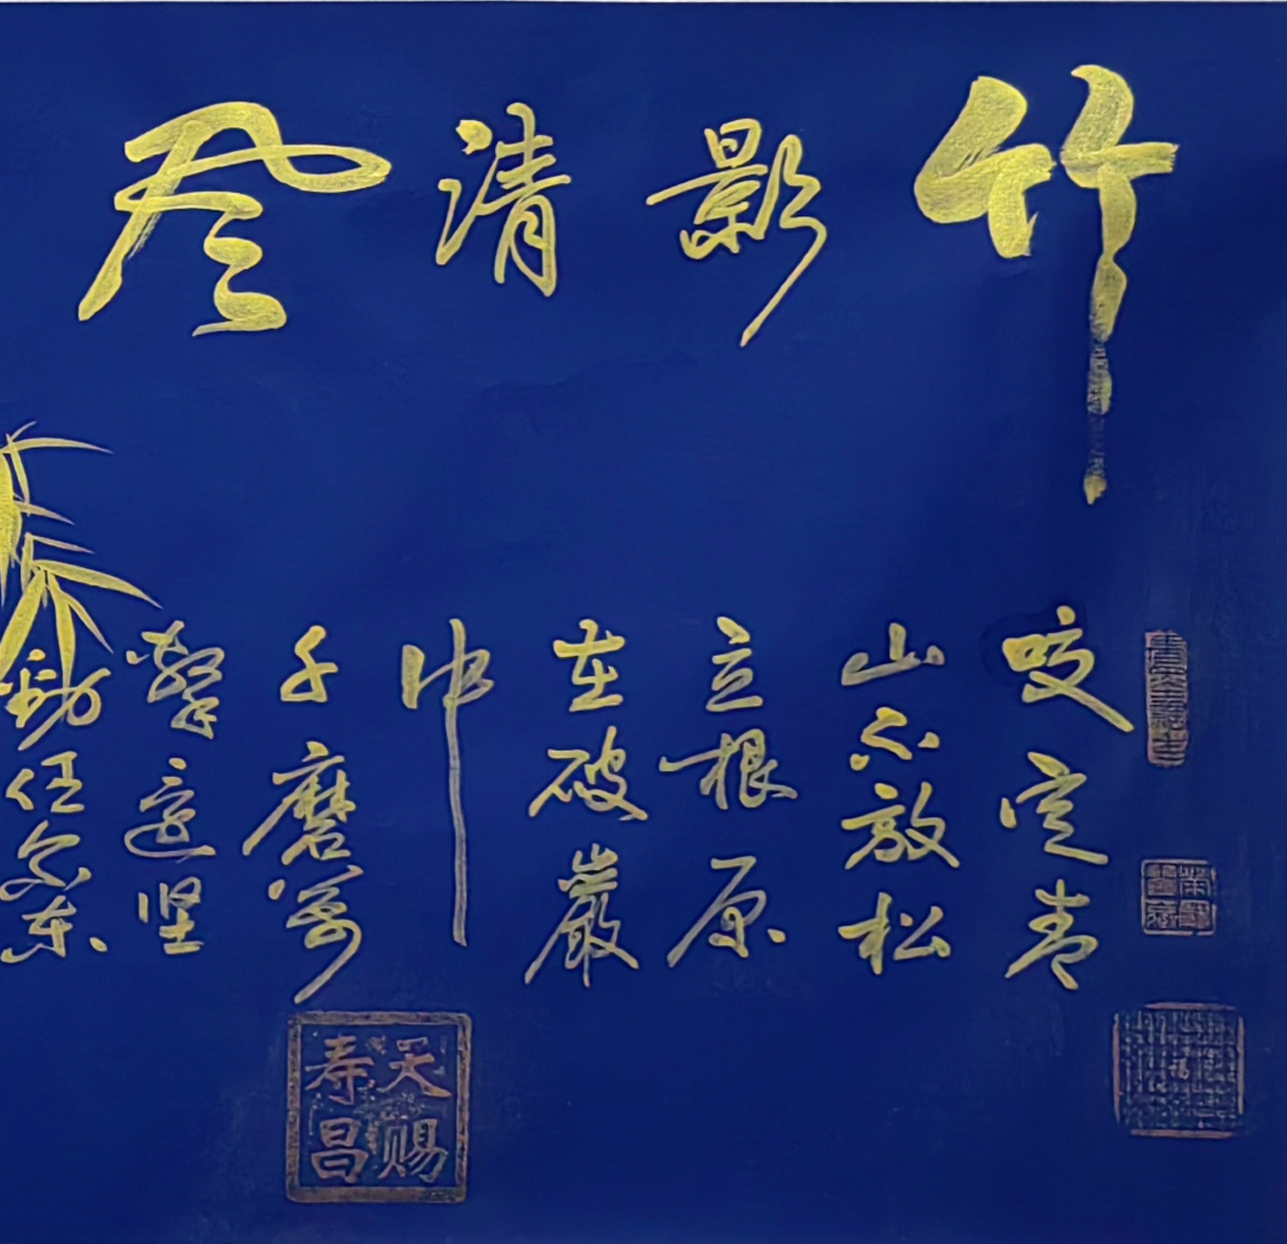 竹影清风
咬定青
山不放松
立根原
在破巖
中
千磨萬
擊還坚
勁任尔东
天赐寿昌